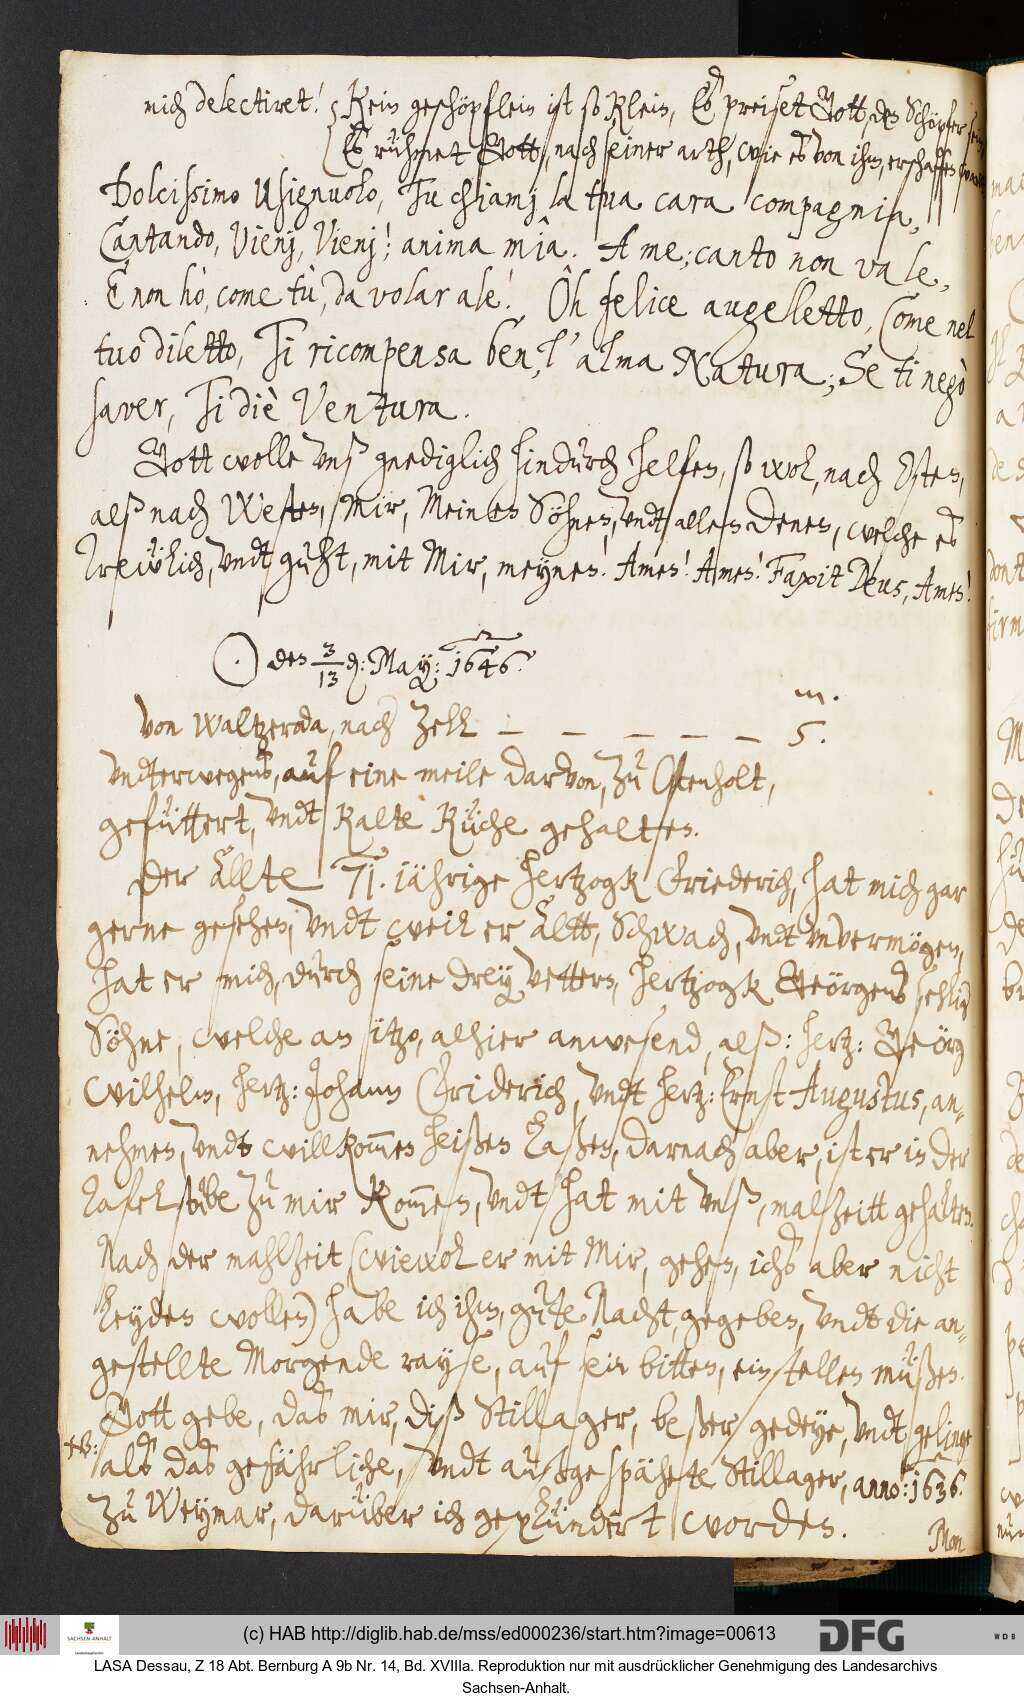 mich delectiret! Kein geschöpflein ist so klein, Es preiset Gott, den Schöpfer sein,
Es rühmet Gott, nach seiner arth, wie es von ihm, erschaffen ward.
Dolcissimo Usignuolo, Tu chiamj la tua cara compagnia,
Cantando, Vienj, Vienj! anima mîa. A me; canto non vale,
E non hò, come tù, da volar ale! Ôh felice augelletto, Come nel
tuo diletto, Ti ricompensa ben, l'alma Natura; Se ti negò
saver, Ti diè Ventura.
Gott wolle vnß gnediglich hindurch helfen, so wol, nach Osten,
alß nach Westen, Mir, Meinen Söhnen, vndt allen Denen, welche es
trewlich, vndt guht, mit Mir, meynen! Amen! Amen! Faxit Deus, Amen!
☉ den 3/13 d: May: 1646.
m.
von Waltzeroda, nach Zell — — — — — 5.
vndterwegens, auf eine meile darvon, zu Ostenholt,
gefüttert, vndt kalte Küche gehalten.
Der ällte 71. iährige Hertzogk Friederich, hat mich gar
gerne gesehen, vndt weil er ältt, Schwach, vndt vnvermögen,
hat er mich, durch seine drey Vettern, Hertzogk Geörgens sehlig
Söhne, welche an itzo, alhier anwesend, alß: Hertz: Geörg
Wilhelm, Hertz: Johann Friderich, vndt Hertz: Ernst Augustus, an-
nehmen, vndt willkommen heißen laßen, darnach aber, ist er in der
tafelstube zu mir kommen, vndt hat mit vnß, malzeitt gehalten.
Nach der mahlzeit (wiewol er mit Mir, gehen, ichs aber nicht
leyden wollen) habe ich ihm, gute Nacht, gegeben, vndt die an-
gestellte Morgende rayse, auf sein bitten, einstellen müßen.
Gott gebe, das mir, diß Stillager, beßer gedeye, vndt gelinge
als das gefährliche, vndt außgespähete Stillager, anno: 1636.
zu Weymar, darüber ich geplündert worden.
Mon
(c) HAB http://diglib.hab.de/mss/ed000236/start.htm?image=00613
SACHSEN-ANHALT
DFG
WDB
LASA Dessau, Z 18 Abt. Bernburg A 9b Nr. 14, Bd. XVIIIa. Reproduktion nur mit ausdrücklicher Genehmigung des Landesarchivs
Sachsen-Anhalt.